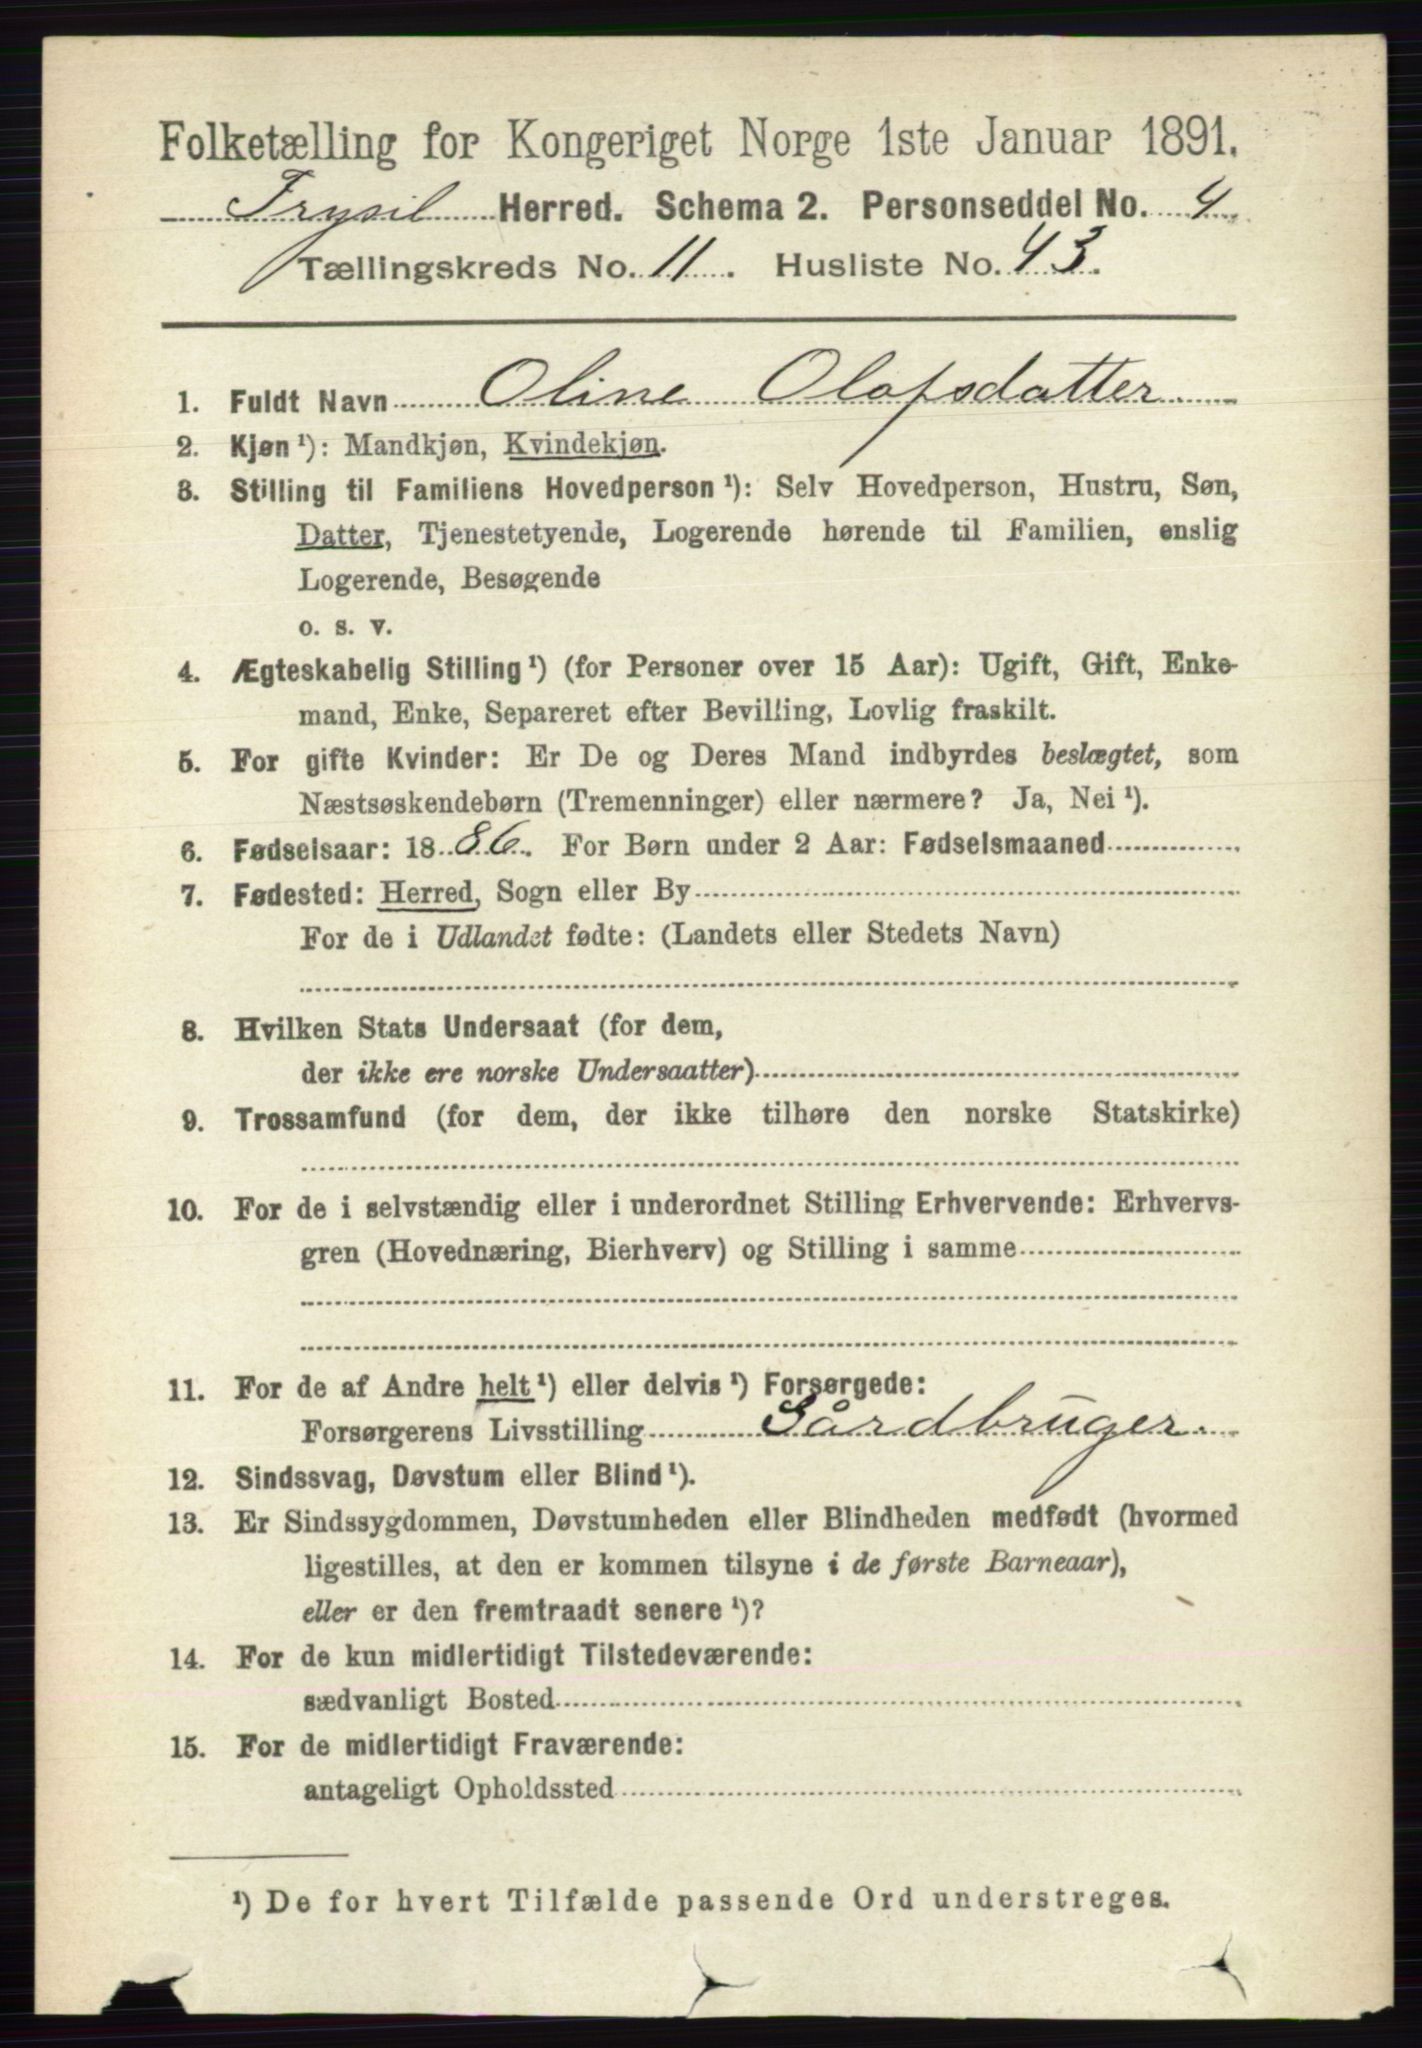 Folketælling for Kongeriget Norge 1ste Januar 1891.
Trysil Herred. Schema 2. Personseddel No. 4
Tællingskreds No. 11. Husliste No. 43.
1. Fuldt Navn Oline Olofsdatter
2. Kjøn ¹): Mandkjøn, Kvindekjøn.
3. Stilling til Familiens Hovedperson ¹): Selv Hovedperson, Hustru, Søn,
Datter, Tjenestetyende, Logerende hørende til Familien, enslig
Logerende, Besøgende
o. s. v.
4. Ægteskabelig Stilling ¹) (for Personer over 15 Aar): Ugift, Gift, Enke-
mand, Enke, Separeret efter Bevilling, Lovlig fraskilt.
5. For gifte Kvinder: Er De og Deres Mand indbyrdes beslægtet, som
Næstsøskendebørn (Tremenninger) eller nærmere? Ja, Nei ¹).
6. Fødselsaar: 1886. For Børn under 2 Aar: Fødselsmaaned
7. Fødested: Herred, Sogn eller By
For de i Udlandet fødte: (Landets eller Stedets Navn)
8. Hvilken Stats Undersaat (for dem,
der ikke ere norske Undersaatter)
9. Trossamfund (for dem, der ikke tilhøre den norske Statskirke)
10. For de i selvstændig eller i underordnet Stilling Erhvervende: Erhvervs-
gren (Hovednæring, Bierhverv) og Stilling i samme
11. For de af Andre helt ¹) eller delvis ¹) Forsørgede:
Forsørgerens Livsstilling Gårdbruger
12. Sindssvag, Døvstum eller Blind ¹).
13. Er Sindssygdommen, Døvstumheden eller Blindheden medfødt (hvormed
ligestilles, at den er kommen tilsyne i de første Barneaar),
eller er den fremtraadt senere ¹)?
14. For de kun midlertidigt Tilstedeværende:
sædvanligt Bosted
15. For de midlertidigt Fraværende:
antageligt Opholdssted
¹) De for hvert Tilfælde passende Ord understreges.